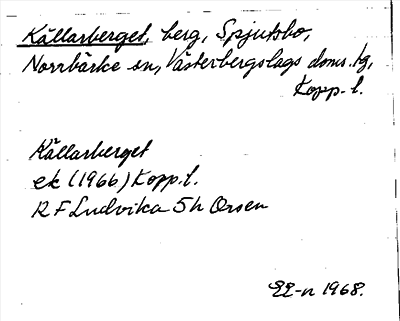 Källarberget, berg, Spjutsbo,
Norrbärke sn, Västerbergslags doms. tg,
Kopp. l.
Källarberget
ek (1966) Kopp. l.
R F Ludvika 5h Orsen
EE-n 1968.